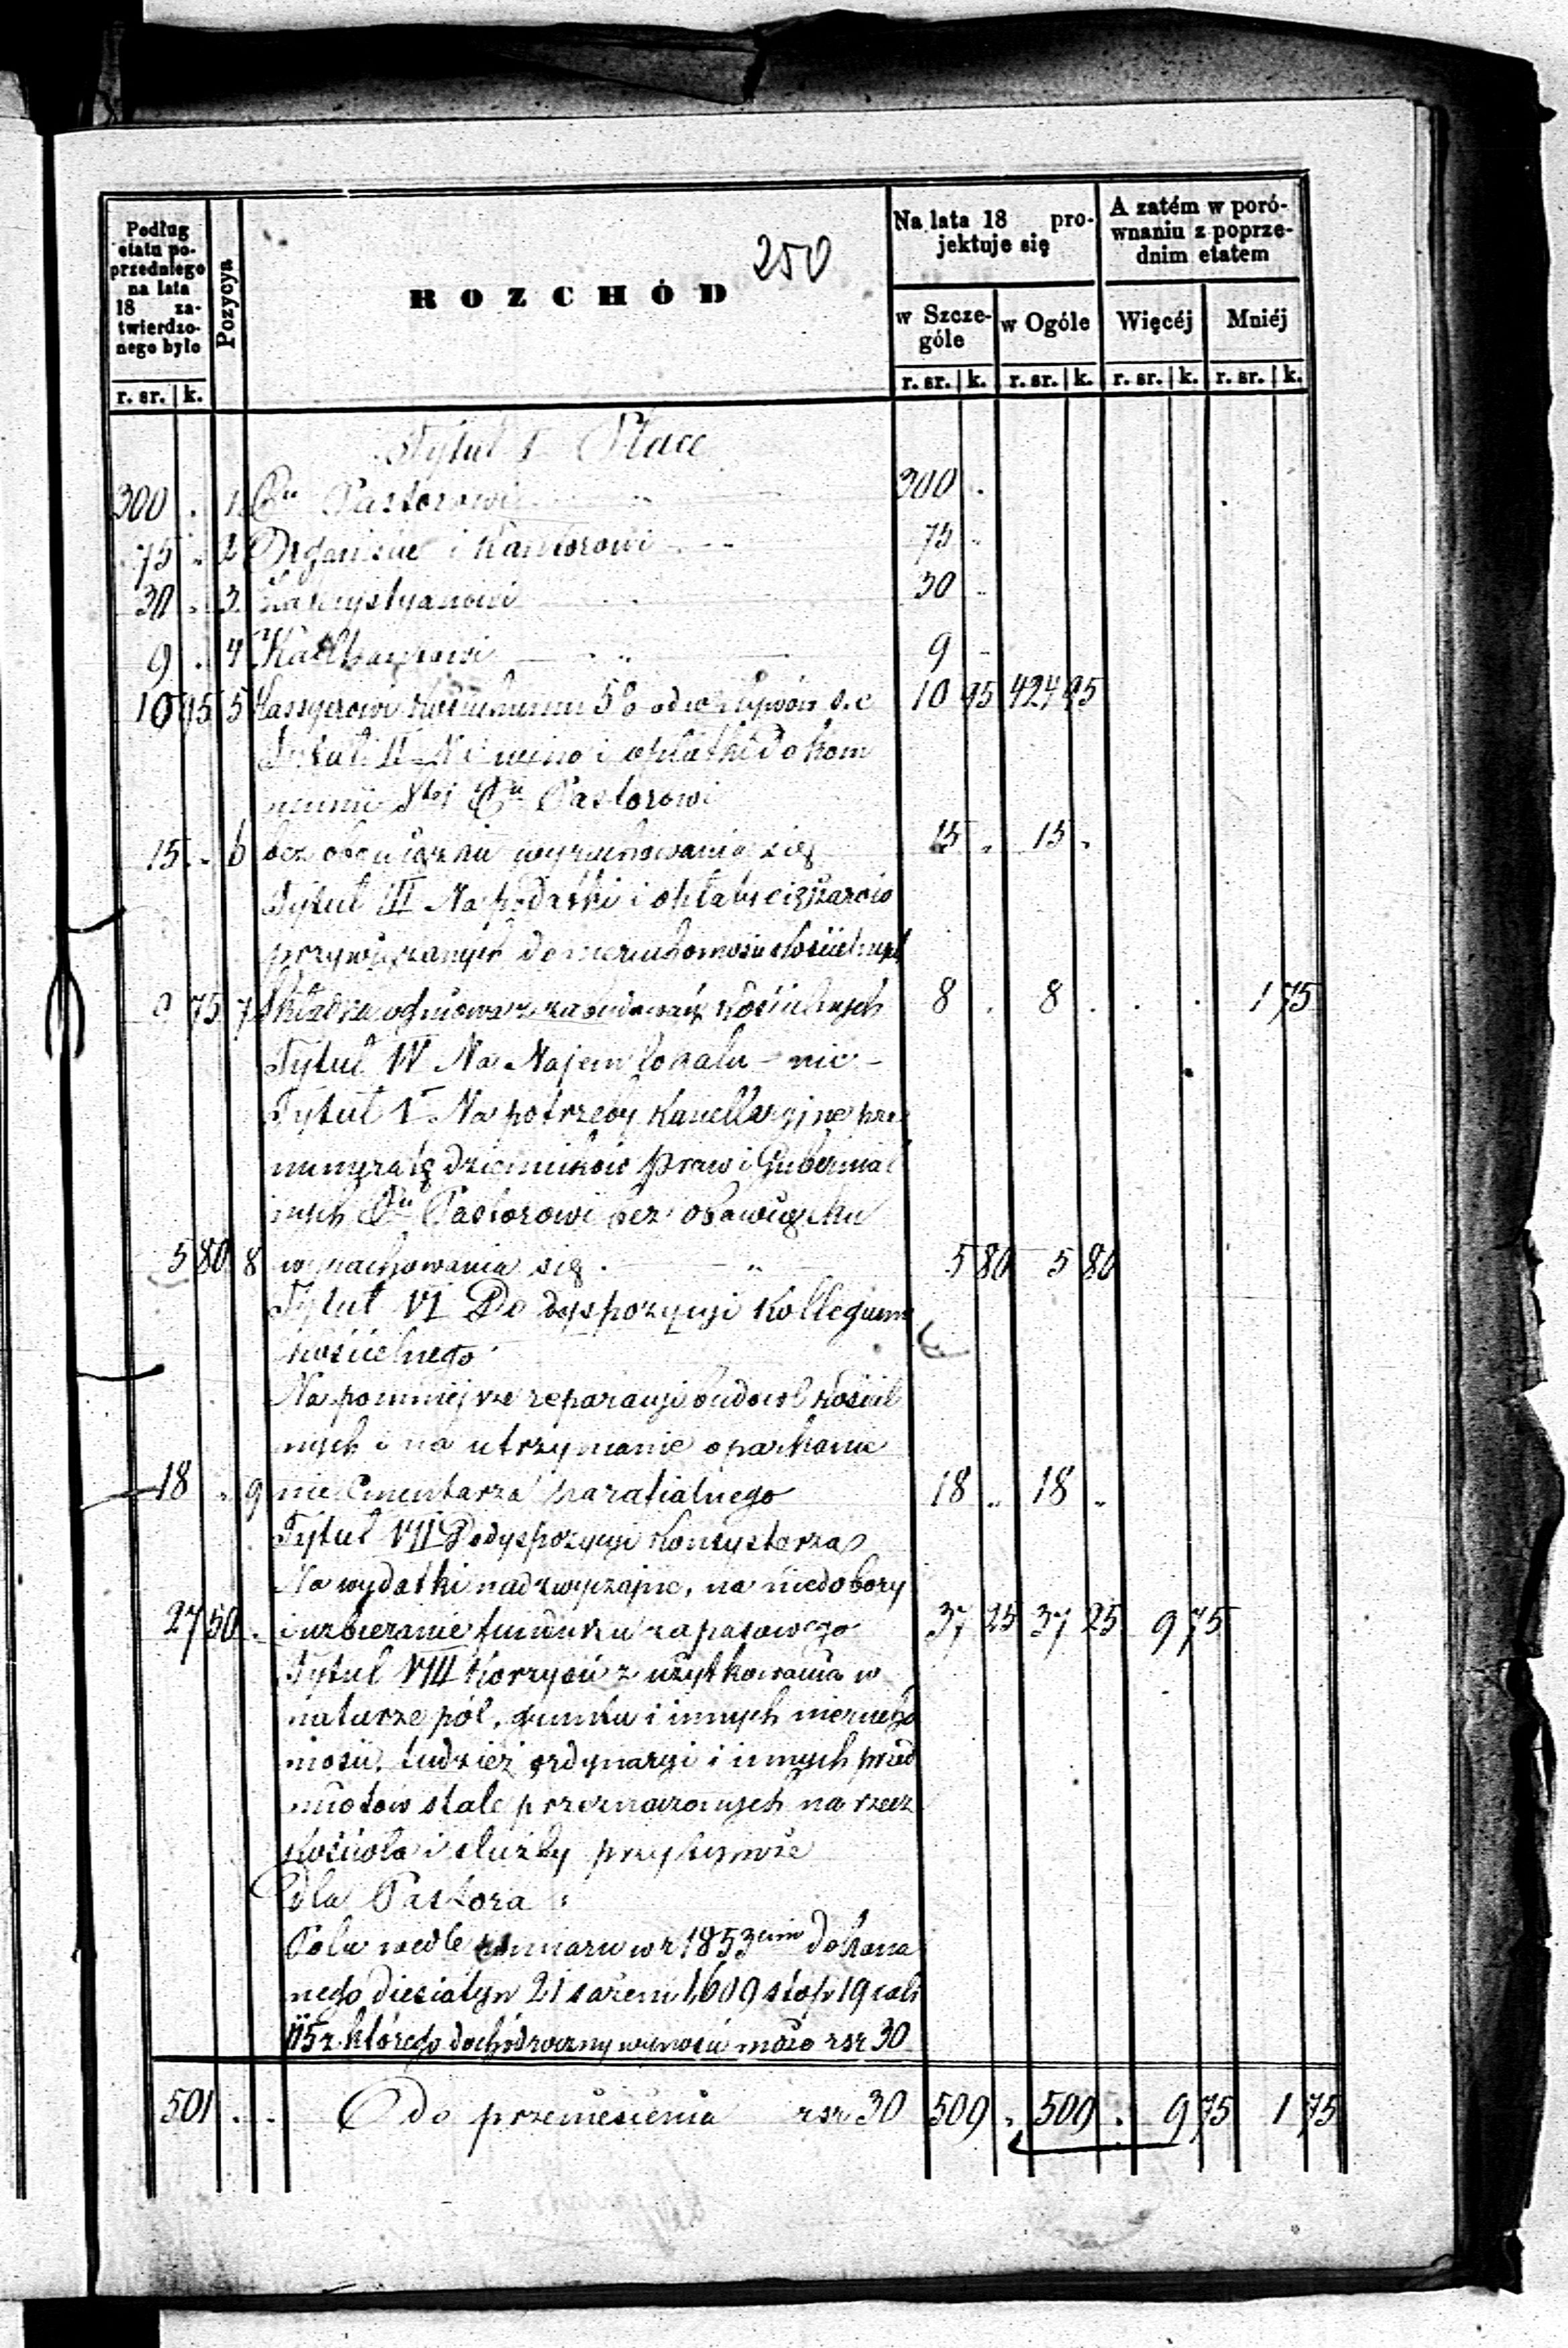 250
Podług etatu poprzedniego na lata 18 zatwierdzonego było
Pozycya
ROZCHÓD
Na lata 18 projektuje się
A zatém w porównaniu z poprzednim etatem
w Szczególe
w Ogóle
Więcéj
Mniéj
r. sr. k.
r. sr. k. r. sr. k. r. sr. k. r. sr. k.
Tytuł I Płace
300 . 1. Pastorowi 300 .
75 " 2 Organiście i Kantorowi 75 "
30 . 3 Zakrystyanowi 30 "
9 . 4 9 -
10 95 5 Kassyerowi 5% od 10 95 424 95
Tytuł II Na wino i opłatki do kom
munii Pastorowi
15 . " 6 bez obowiązku wyrachowania się 15 " 15 "
Tytuł III Na podatki i opłaty ciężarów
przywiązanych do nieruchomości kościelnych
75 7 Składka ogniowa z zabudowań kościelnych 8 . 8 . . . 1 75
Tytuł IV Na Najem lokalu - nic -
Tytuł V Na potrzeby Kancellaryjne pre
numeratę dzienników Praw i Gubernial
nych Pastorowi bez obowiązku
5 80 8 wyrachowania się . - " - 5 80 5 80
Tytuł VI Do dyspozycyi Kollegium
kościelnego
Na pomniejsze reparacyi budowl kościel
nych i na utrzymanie oparkanie
18 " 9 nie Cmentarza parafialnego 18 " 18 "
Tytuł VII Do dyspozycyi Konsystorza
Na wydatki nadzwyczajne, na niedobory
27 50 . i uzbieranie funduszu zapasowego 37 25 37 25 9 75
Tytuł VIII Korzyści z użytkowania w
naturze pól, gruntu i innych nierucho
mości, tudzież ordynaryi i innych przed
miotów stale przeznaczonych na rzecz
kościoła i służby przy tymże
dla Pastora :
Pola wedle rozmiaru w r 1853cim dokona
nego diesiatyn 21 sażeni 1,609 stóp 19 cali
115 z którego dochód roczny wynosić może rsr 30
501 . . do przeniesienia rsr 30 509 " 509 . 9 75 1 75